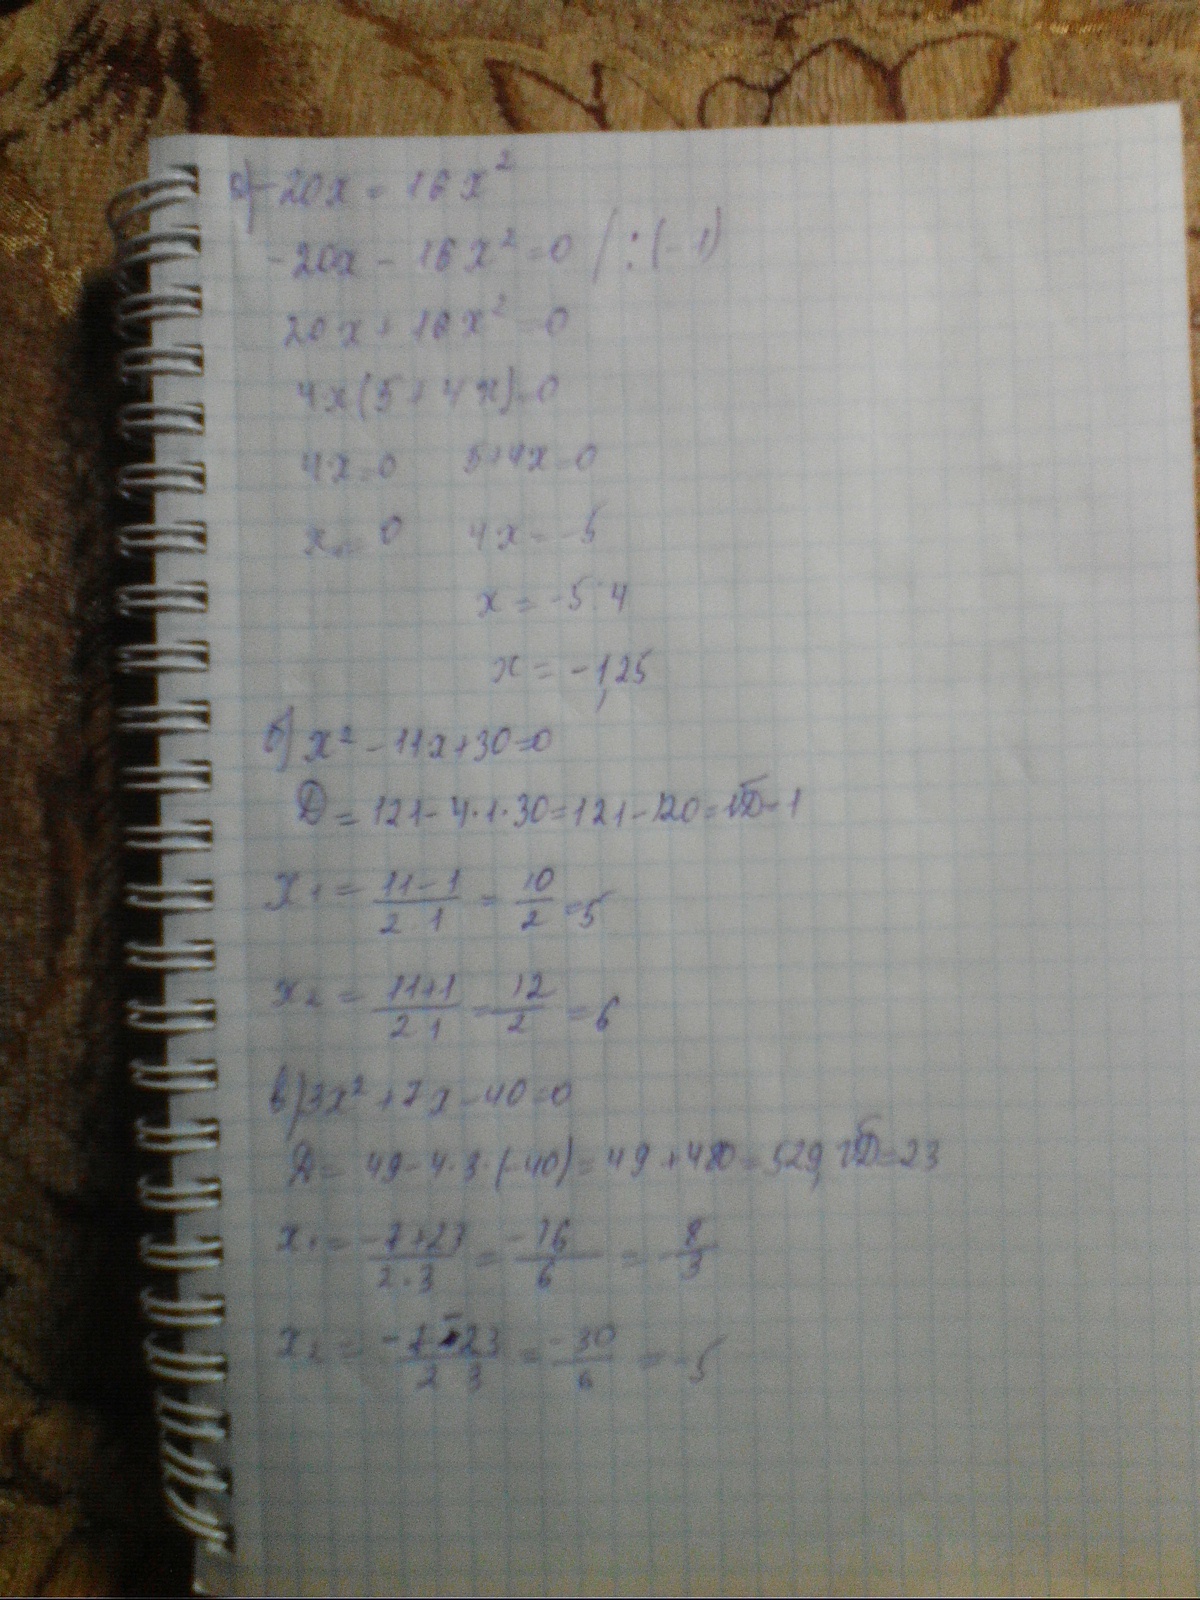 а) -20x = 16x²
-20x - 16x² = 0 / : (-1)
20x + 16x² = 0
4x(5 + 4x) = 0
4x = 0    5+4x = 0
x = 0    4x = -5
x = -5:4
x = -1,25
б) x² - 11x + 30 = 0
D = 121 - 4·1·30 = 121 - 120 = 1 √D = 1
x₁ = (11-1)/(2·1) = 10/2 = 5
x₂ = (11+1)/(2·1) = 12/2 = 6
в) 3x² + 7x - 40 = 0
D = 49 - 4·3·(-40) = 49 + 480 = 529, √D = 23
x₁ = (-7+23)/(2·3) = -16/6 = 8/3
x₂ = (-7-23)/(2·3) = -30/6 = -5